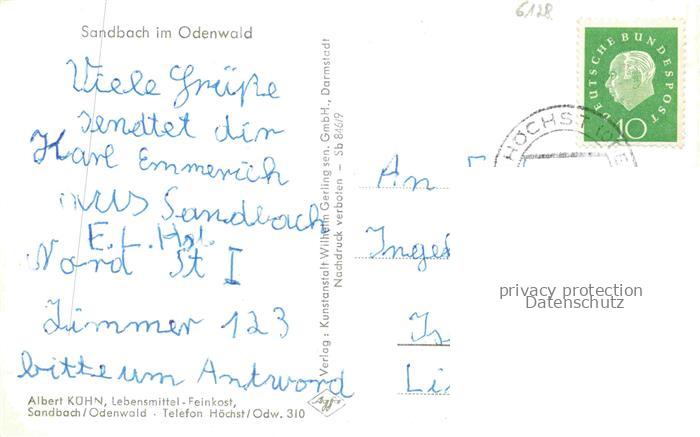 6128
Sandbach im Odenwald
Viele Grüße
sendtet dir
Karl Emmerich
aus Sandbach
E.L.Hst.
Nord St I
Zimmer 123
bitte um Antword
Albert KÜHN, Lebensmittel-Feinkost,
Sandbach/Odenwald · Telefon Höchst/Odw. 310
Verlag: Kunstanstalt Wilhelm Gerling sen. GmbH., Darmstadt
Nachdruck verboten — Sb 846/9
Agfa
DEUTSCHE BUNDESPOST
10
HÖCHST
An
privacy protection
Datenschutz